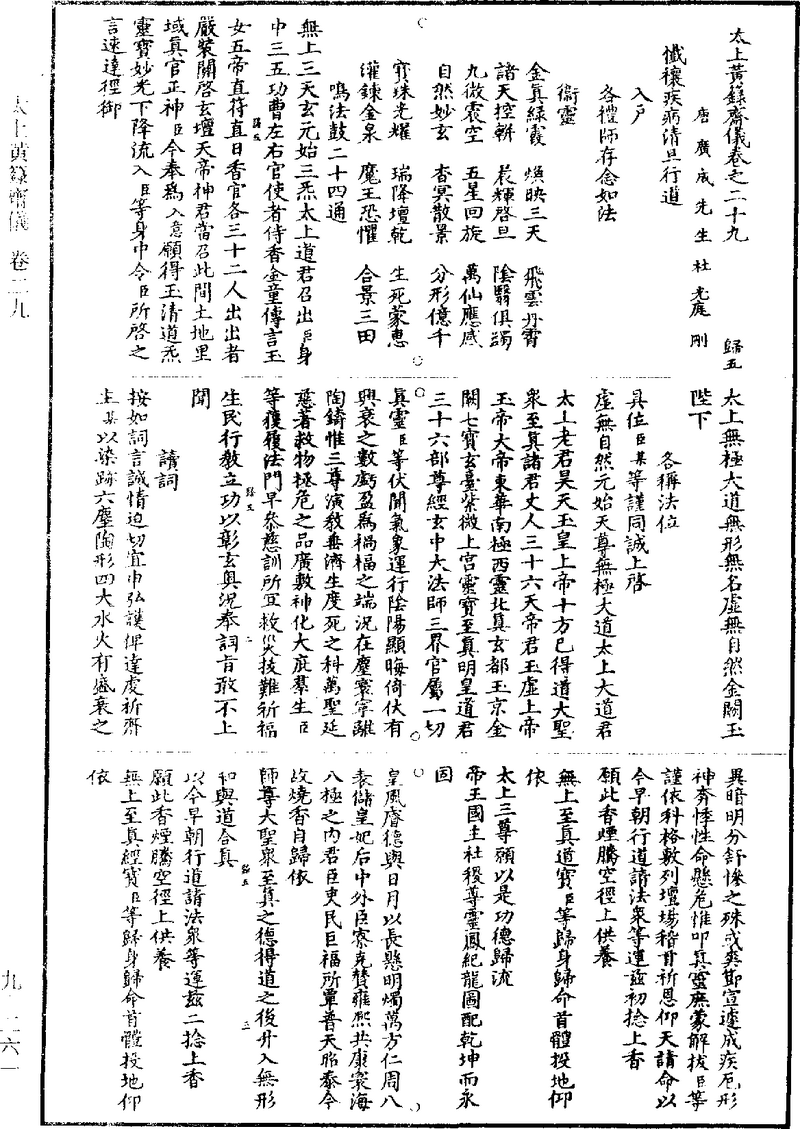 太上黃籙齋儀卷之二十九
歸五
唐廣成先生杜光庭刪
懺禳疾病清旦行道
入戶
各禮師存念如法
衞靈
金真綠霞 煥映三天 飛雲丹霄
諸天控軿 晨輝啓旦 陰翳俱蠲
九微震空 五星回旋 萬仙應感
自然妙玄 杳冥散景 分形億千
寶珠光耀 瑞降壇乾 生死蒙惠
灌鍊金泉 魔王恐懼 合景三田
鳴法鼓二十四通
無上三天玄元始三炁太上道君召出臣身
中三五功曹左右官使者侍香金童傳言玉
女五帝直符直日香官各三十二人出出者
嚴裝關啓玄壇天帝神君當召此間土地里
域真官正神臣今奉爲入意願得玉清道炁
靈寶妙光下降流入臣等身中令臣所啓之
言速達徑御
太上無極大道無形無名虛無自然金闕玉
陛下
各稱法位
具位臣某等謹同誠上啓
虛無自然元始天尊無極大道太上大道君
太上老君昊天玉皇上帝十方已得道大聖
衆至真諸君丈人三十六天帝君玉虛上帝
玉帝大帝東華南極西靈北真玄都玉京金
闕七寶玄臺紫微上宮靈寶至真明皇道君
三十六部尊經玄中大法師三界官屬一切
真靈臣等伏聞氣象運行陰陽顯晦倚伏有
興衰之數虧盈爲禍福之端況在塵寰寧離
陶鑄惟三尊演教垂濟生度死之科萬聖延
慈著救物拯危之品廣敷神化大庇羣生臣
等獲履法門早參慈訓所宜救災拔難祈福
生民行教立功以彰玄奧況奉詞旨敢不上
聞
讀詞
按如詞言誠情迫切宜申弘護俾達虔祈齋
主某以染跡六塵陶形四大水火有盛衰之
異暗明分舒慘之殊或爽節宣遽成疾厄形
神奔悸性命懸危惟叩真靈庶蒙解拔臣等
謹依科格敷列壇場稽首祈恩仰天請命以
今早朝行道請法衆等運茲初捻上香
願此香煙騰空徑上供養
無上至真道寶臣等歸身歸命首體投地仰
依
太上三尊願以是功德歸流
帝王國主社稷尊靈鳳紀龍圖配乾坤而永
固
皇風睿德與日月以長懸明燭萬方仁周八
表儲皇妃后中外臣寮克贊雍熙共康寰海
八極之內君臣吏民巨福所覃普天昭泰今
故燒香自歸依
師尊大聖衆至真之德得道之後升入無形
和與道合真
以今早朝行道請法衆等運茲二捻上香
願此香煙騰空徑上供養
無上至真經寶臣等歸身歸命首體投地仰
依
太上黃籙齋儀 卷二九
九·二六一